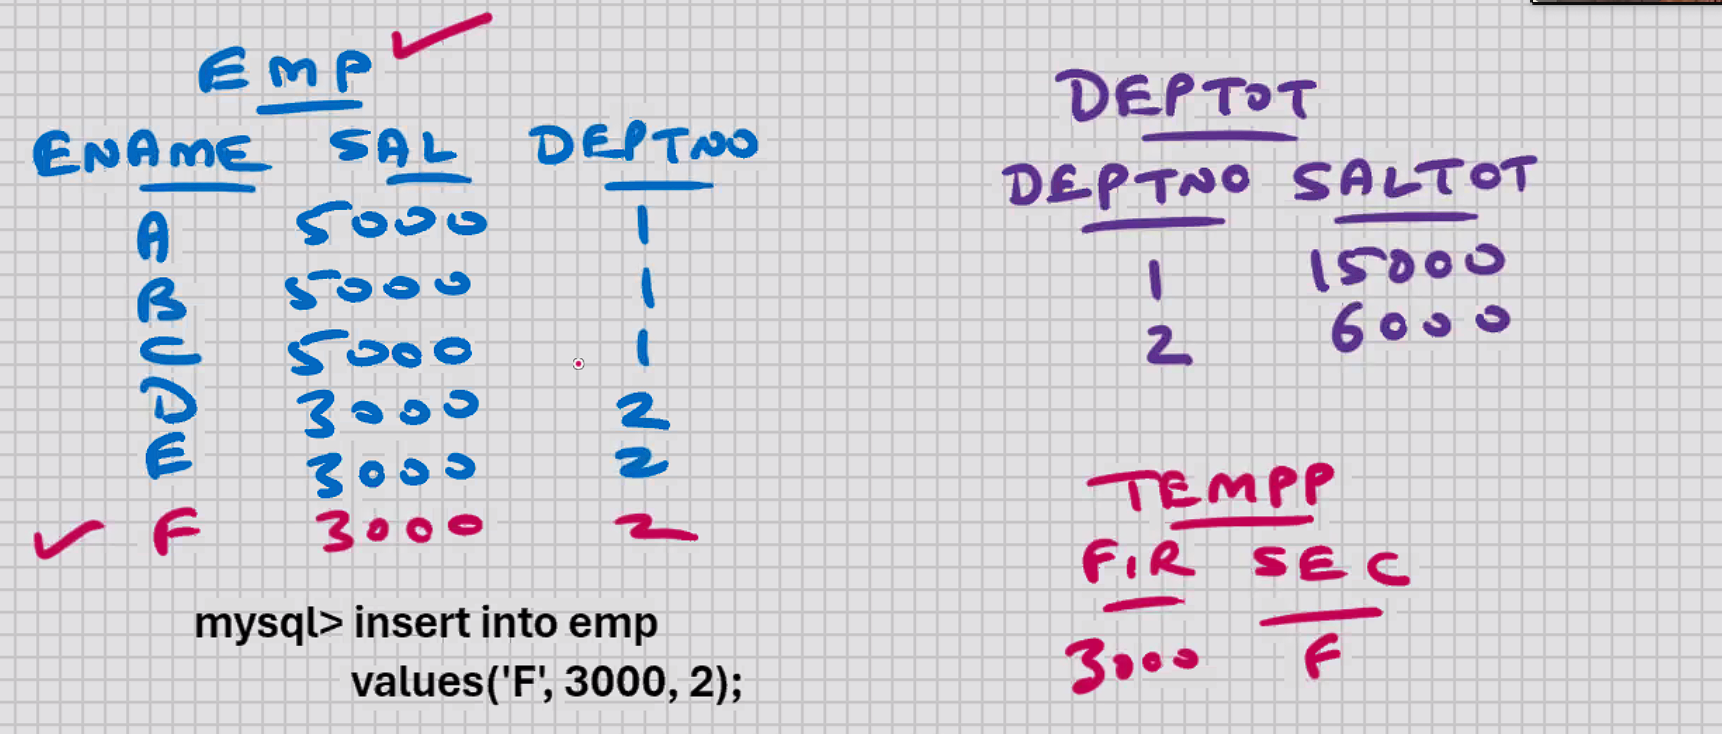 EMP
ENAME SAL DEPTNO
A 5000 1
B 5000 1
C 5000 1
D 3000 2
E 3000 2
F 3000 2
mysql> insert into emp
values('F', 3000, 2);
DEPTOT
DEPTNO SALTOT
1 15000
2 6000
TEMPP
FIR SEC
3000 F